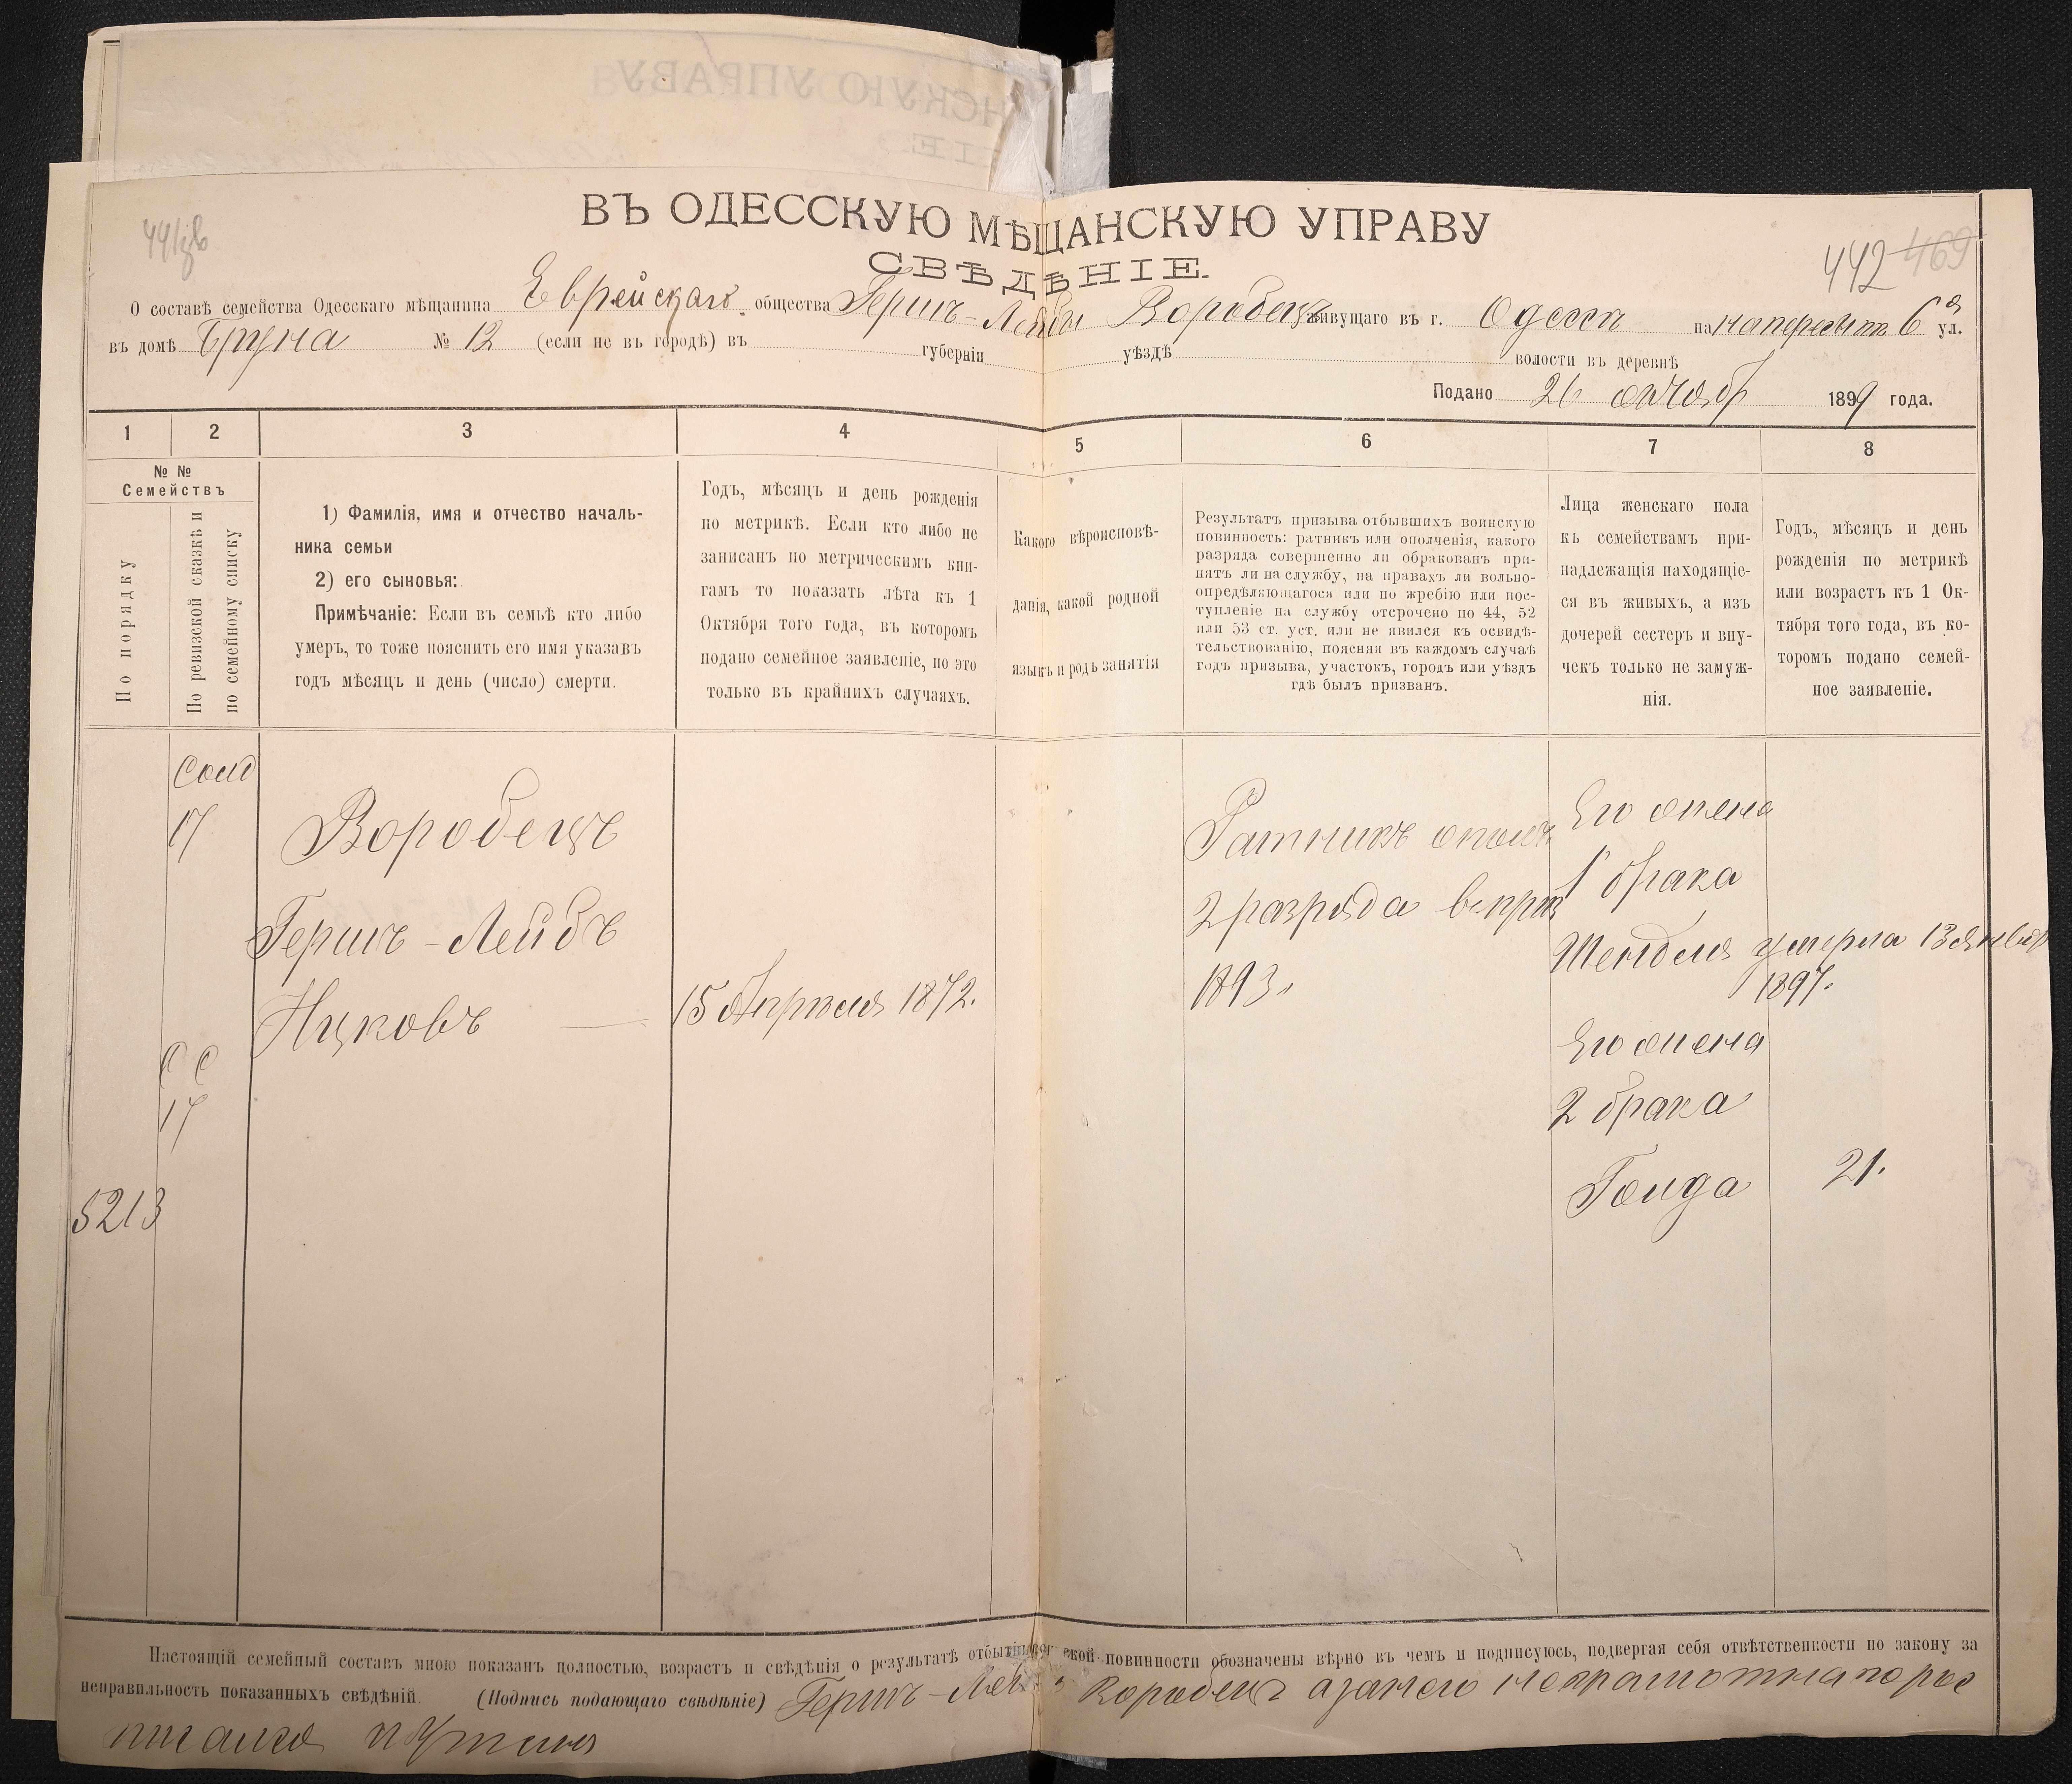 ВЪ ОДЕССКУЮ МѢЩАНСКУЮ УПРАВУ
СВѢДѢНІЕ.
442 469
О составѣ семейства Одесскаго мѣщанина Еврейскаго общества Гершъ-Лейбы Воробецъ живущаго въ г. Одессѣ на 6й ул.
въ домѣ Бруна № 12 (если не въ городѣ) въ губерніи уѣздѣ волости въ деревнѣ
Подано 26 октябр 1899 года.
1 2 3 4 5 6 7 8
№ №
Семействъ
По порядку
По ревизской сказкѣ и
по семейному списку
1) Фамилія, имя и отчество началь-
ника семьи
2) его сыновья:
Примѣчаніе: Если въ семьѣ кто либо
умеръ, то тоже пояснить его имя указавъ
годъ мѣсяцъ и день (число) смерти.
Годъ, мѣсяцъ и день рожденія
по метрикѣ. Если кто либо не
записанъ по метрическимъ кни-
гамъ то показать лѣта къ 1
Октября того года, въ которомъ
подано семейное заявленіе, но это
только въ крайнихъ случаяхъ.
Какого вѣроисповѣ-
данія, какой родной
языкъ и родъ занятія
Результатъ призыва отбывшихъ воинскую
повинность: ратникъ или ополченія, какого
разряда совершенно ли обракованъ при-
нятъ ли на службу, на правахъ ли вольно-
опредѣляющагося или по жребію или пос-
тупленіе на службу отсрочено по 44, 52
или 53 ст. уст. или не явился къ освидѣ-
тельствованію, поясняя въ каждомъ случаѣ
годъ призыва, участокъ, городъ или уѣздъ
гдѣ былъ призванъ.
Лица женскаго пола
къ семействамъ при-
надлежащія находящіе-
ся въ живыхъ, а изъ
дочерей сестеръ и вну-
чекъ только не замуж-
нія.
Годъ, мѣсяцъ и день
рожденія по метрикѣ
или возрастъ къ 1 Ок-
тября того года, въ ко-
торомъ подано семей-
ное заявленіе.
17
Воробецъ
Гершъ-Лейбъ
Ицковъ —
15 Апрѣля 1872.
Ратникъ ополч
2 разряда
1893.
Его жена
1 брака
Шендля умерла 13 Январ
1897.
Его жена
2 брака
Гольда 21.
С С
17
5213
Настоящій семейный составъ мною показанъ полностью, возрастъ и свѣдѣнія о результатѣ отбытія воинской повинности обозначены вѣрно въ чемъ и подписуюсь, подвергая себя отвѣтственности по закону за
неправильность показанныхъ свѣдѣній. (Подпись подающаго свѣдѣніе) Гершъ-Лейб Воробецъ а занего неграмотна